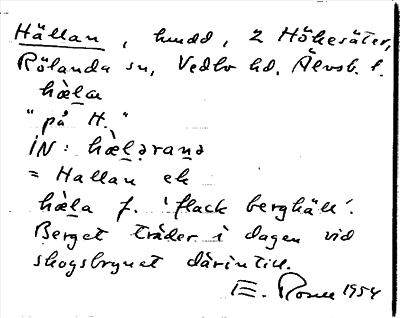 Hällan, hmdd, 2 Hökesäter,
Rölanda sn, Vedbo hd. Älvsb. l.
hæ̀la
"på H."
IN: hæ̀ləranə
= Hallan ek
hæ̀la f. 'flack berghäll'.
Berget träder i dagen vid
skogsbrynet därintill.
E. Rosell 1954